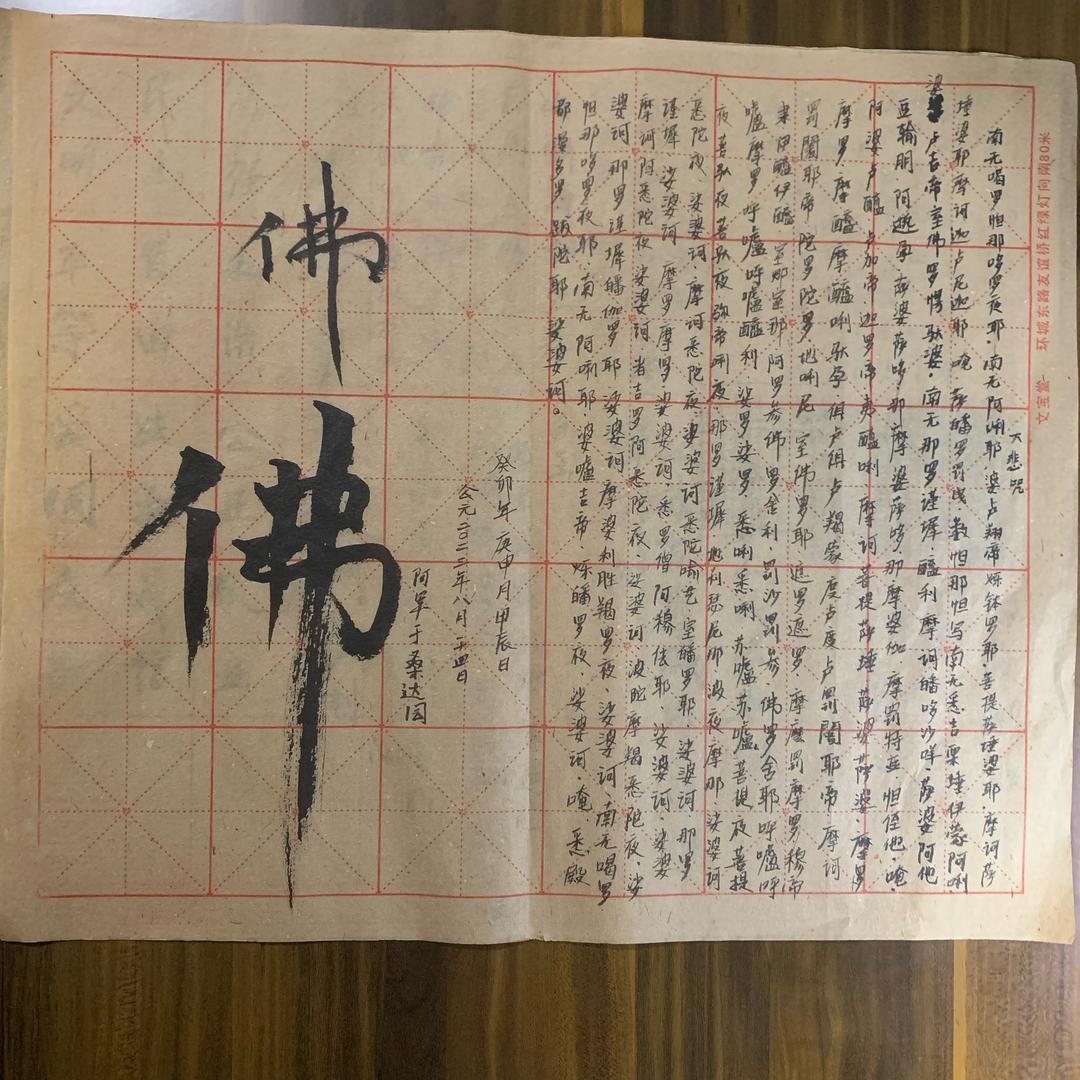 文宝堂 环城东路友谊桥红绿灯向南80米
大悲咒
南无喝罗怛那哆罗夜耶·南无阿唎耶 婆卢羯谛烁钵罗耶·菩提萨埵婆耶·摩诃萨
埵婆耶摩诃迦卢尼迦耶 唵 萨皤罗罚曳 数怛那怛写南无悉吉栗埵伊蒙阿唎
婆卢吉帝室佛罗愣驮婆·南无那罗谨墀 醯利摩诃皤哆沙咩·萨婆阿他
豆输朋 阿逝孕 萨婆萨哆那摩婆萨哆那摩婆伽·摩罚特豆 怛侄他·唵·
阿婆卢醯 卢加帝·迦罗帝 夷醯唎 摩诃菩提萨埵 萨婆萨婆 摩罗
摩罗 摩醯摩醯唎驮孕 俱卢俱卢羯蒙 度卢度卢罚闍耶帝 摩诃
罚闍耶帝 陀罗陀罗 地唎尼 室佛罗耶 遮罗遮罗·摩麼罚摩罗穆帝
隶伊醯伊醯 室那室那 阿罗参佛罗舍利·罚沙罚参 佛罗舍耶呼嚧呼
嚧摩罗 呼嚧呼嚧醯利 娑罗娑罗 悉唎悉唎 苏嚧苏嚧 菩提夜菩提
夜菩驮夜菩驮夜 弥帝唎夜·那罗谨墀 地利瑟尼那·波夜摩那·娑婆诃
悉陀夜 娑婆诃 摩诃悉陀夜·娑婆诃悉陀喻艺 室皤罗耶·娑婆诃·那罗
谨墀 娑婆诃 摩罗摩罗 娑婆诃悉罗僧阿穆佉耶·娑婆诃·娑婆
摩诃阿悉陀夜 娑婆诃 者吉罗阿悉陀夜 娑婆诃 波陀摩羯悉陀夜·娑
婆诃 那罗谨墀皤伽罗耶 娑婆诃·摩婆利胜羯罗夜·娑婆诃 南无喝罗
怛那哆罗夜耶·南无阿唎耶·婆嚧吉帝·烁皤罗夜·娑婆诃·唵·悉殿
都漫多罗 跋陀耶 娑婆诃。
癸卯年庚申月甲辰日
公元二〇二三年八月二十四日
阿 于桑达园
佛
佛